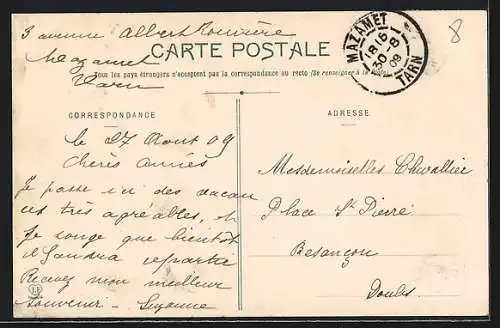 3 avenue Albert Rouvière
Mazamet
Tarn
CARTE POSTALE
Tous les pays étrangers n'acceptent pas la correspondance au recto (Se renseigner à la Poste)
MAZAMET
18 15
30-8
09
TARN
8
CORRESPONDANCE
le 27 Aout 09
Chères Amies
Je passe ici des vacan
ces très agréables, et
Je songe que bientôt
il faudra repartir
Recevez mon meilleur
Souvenir - Suzanne
ADRESSE
Mesdemoiselles Chevallier
Place St Pierre
Besançon
Doubs